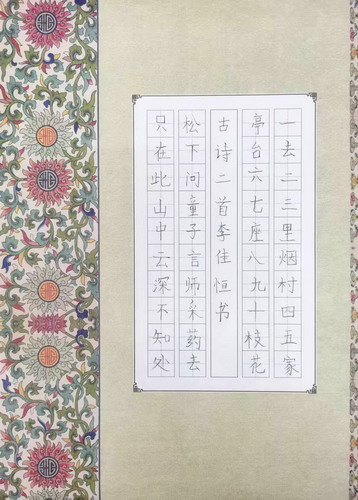 一去二三里烟村四五家
亭台六七座八九十枝花
古诗二首李佳恒书
松下问童子言师采药去
只在此山中云深不知处